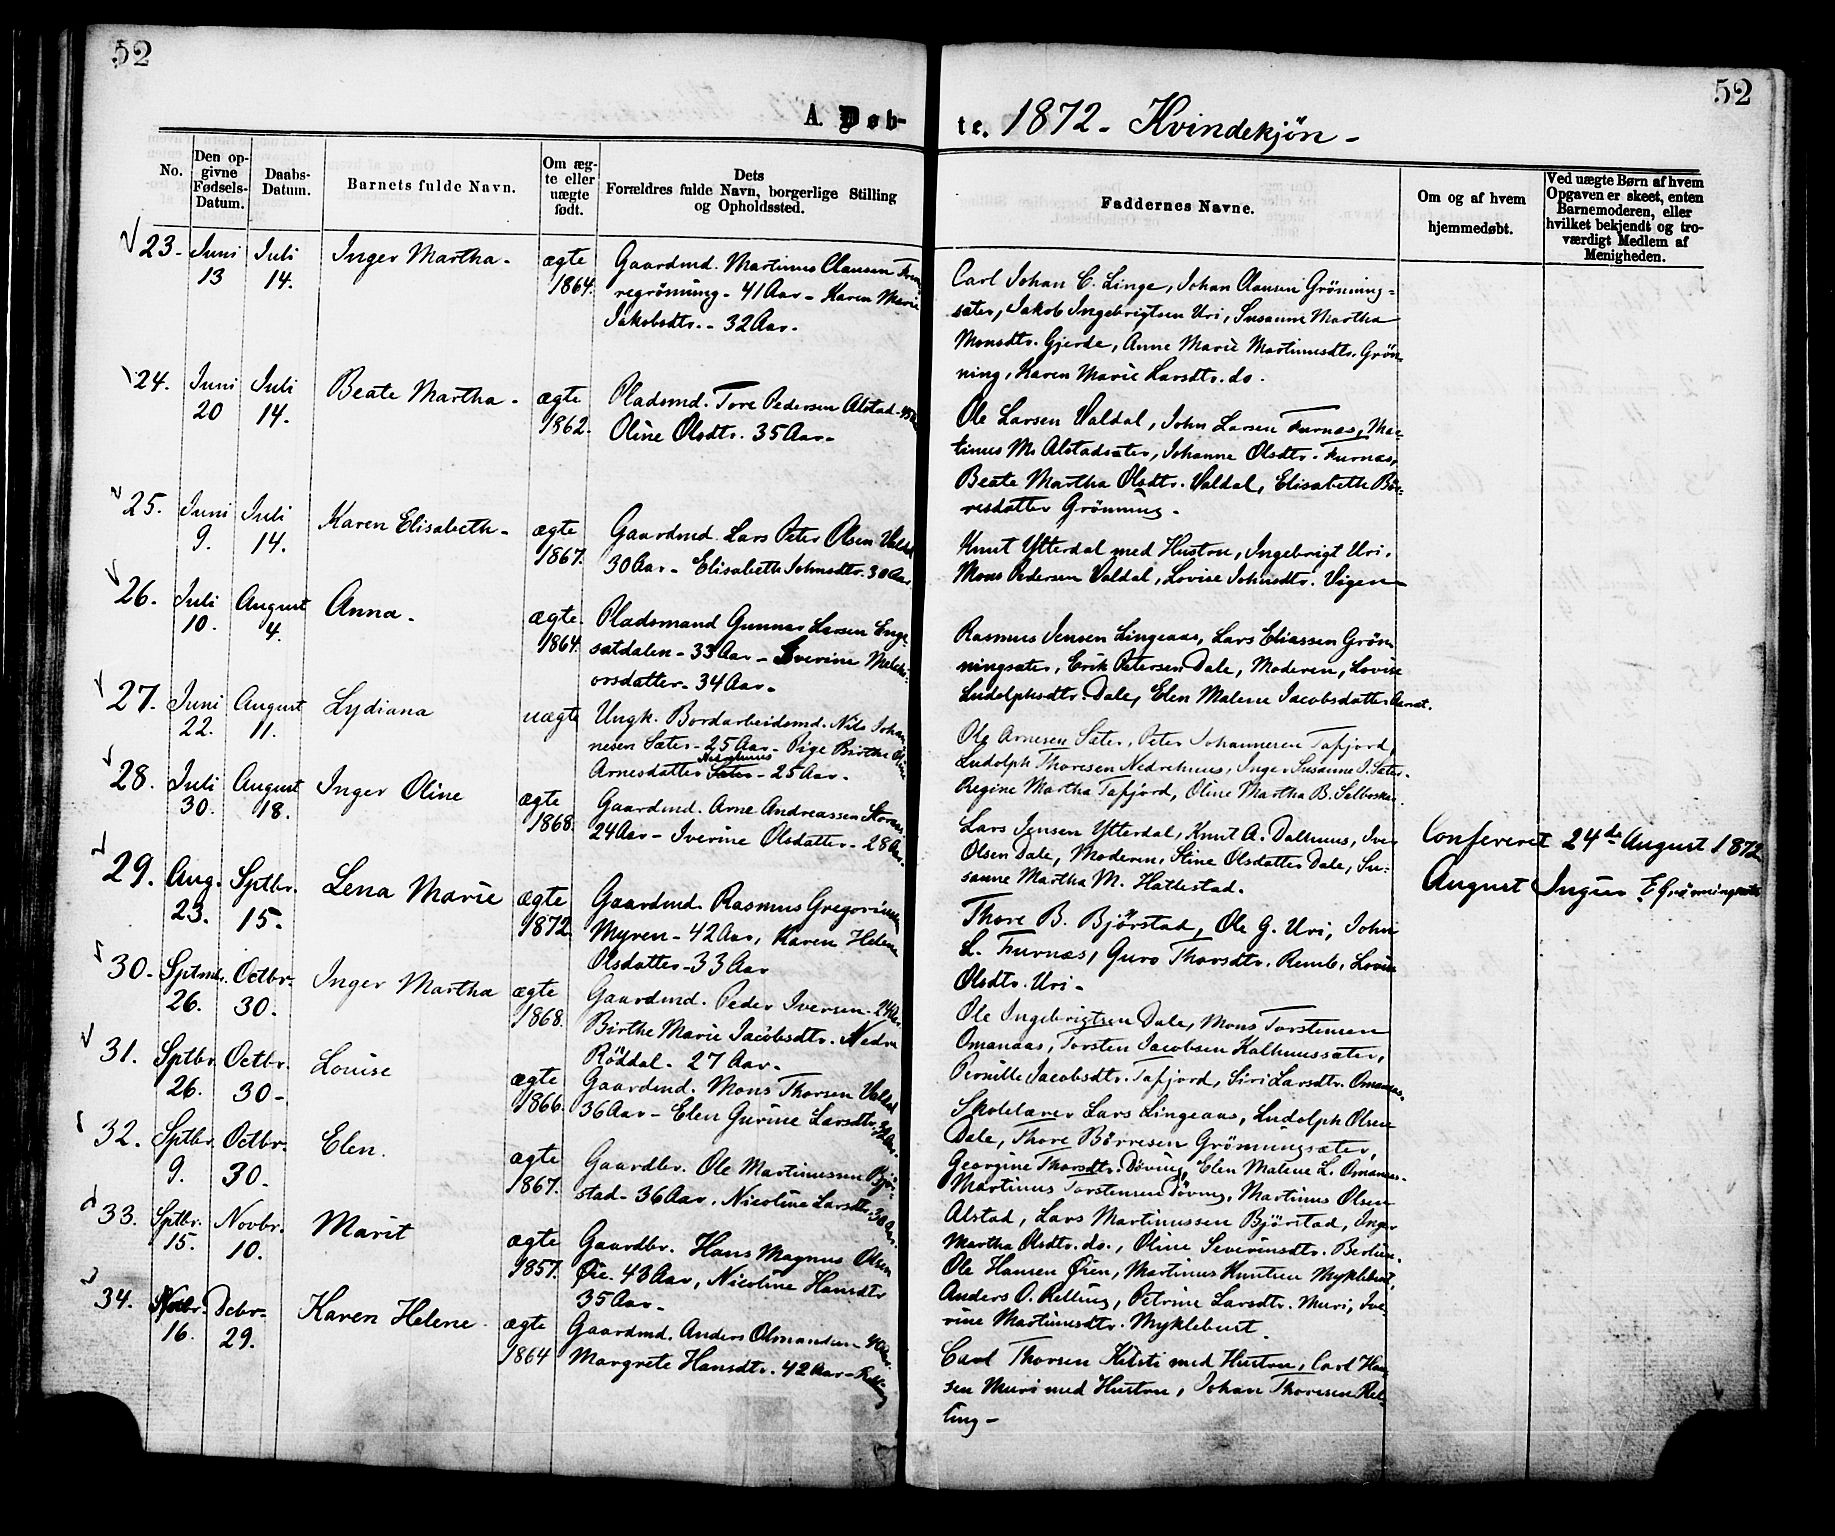 52
52
A. Døb-
te. 1872 - Kvindekjøn -
No.
Den op-
givne
Fødsels-
Datum.
Daabs-
Datum.
Barnets fulde Navn.
Om æg-
te eller
uægte
født.
Dets
Forældres fulde Navn, borgerlige Stilling
og Opholdssted.
Faddernes Navne.
Om og af hvem
hjemmedøbt.
Ved uægte Børn af hvem
Opgaven er skeet, enten
Barnemoderen, eller
hvilket bekjendt og tro-
værdigt Medlem af
Menigheden.
23. Juni 13 Juli 14. Inger Martha - ægte 1864.
Gaardmd. Martinus Clausen
regrönning - 41 Aar - Karen Marie
Jakobsdtr. - 32 Aar.
Carl Johan C. Linge, Johan Clausen Grönning-
sæter, Jakob Ingebrigtsen Uri, Susanne Martha
Monsdtr. Gjerde, Anne Marie Martinusdtr. Grön-
ning, Karen Marie Larsdtr. do.
24. Juni 20 Juli 14. Beate Martha - ægte 1862.
Pladsmd. Tore Pedersen Alstad - 45
Oline Olsdtr. 35 Aar -
Ole Larsen Valdal, John Larsen Furnæs, Mar-
tinus M. Alstadsæter, Johanne Olsdtr. Furnæs,
Beate Martha Olsdtr. Valdal, Elisabeth Bör-
resdatter Grönning -
25. Juni 9. Juli 14. Karen Elisabeth - ægte 1867.
Gaardmd. Lars Peter Olsen Valdal
30 Aar - Elisabeth Johnsdtr. 30 Aar
Knut Ytterdal med Hustru, Ingebrigt Uri,
Mons Pedersen Valdal, Lovise Johnsdtr. Vigen -
26. Juli 10. August 4. Anna - ægte 1864.
Pladsmand Gunnar Larsen Enge
sætdalen - 33 Aar - Iverine Melch-
orsdatter - 34 Aar -
Rasmus Jensen Lingeaas, Lars Eliassen Grön-
ningsæter, Erik Petersen Dale, Moderen, Lovise
Ludolphsdtr. Dale, Elen Malene Jacobsdatter
27. Juni 22. August 11. Lydiana uægte
Ungk. Bordarbeidsmd. Nils Johan
nesen Sæter - 25 Aar - Pige Birthe Oline
Arnesdatter Sæter - 25 Aar -
Ole Arnesen Sæter, Peter Johannesen Tafjord,
Ludolph Thoresen Nedrehuus, Inger Susanne J. Sæter.
Regine Martha Tafjord, Oline Martha B.
28. Juli 30. August 18. Inger Oline ægte 1868.
Gaardmd. Arne Andreassen
24 Aar - Iverine Olsdatter - 28 Aar.
Lars Jensen Ytterdal, Knut A. Dalhuus, Iver
Olsen Dale, Moderen, Stine Olsdatter Dale, Su-
sanne Martha M. Hattestad.
Confereret 24de August 1872
August
29. Aug. 23. Sptbr. 15. Lena Marie ægte 1872
Gaardmd. Rasmus Gregoriusen
Myren - 42 Aar, Karen Helene
Olsdatter - 33 Aar
Thore B. Bjørstad, Ole G. Uri, John
L. Furnæs, Guro Thorsdtr. Remb, Lovise
Olsdtr. Uri -
30. Sptmbr. 26. Octbr. 30. Inger Martha ægte 1868.
Gaardmd. Peder Iversen - 24 Aar
Birthe Marie Jacobsdtr. Nedre
Röddal - 27 Aar -
Ole Ingebrigtsen Dale, Mons Torstensen
Omanaas, Torsten Jacobsen Kalhuussæter,
Pernille Jacobsdtr. Tafjord, Siri Larsdtr. Omanaas.
31. Sptbr. 26. Octbr. 30 - Louise ægte 1866.
Gaardmd. Mons Thorsen Valdal
36 Aar - Elen Gurine Larsdtr.
Skolelærer Lars Lingeaas, Ludolph Olsen
Dale, Thore Börresen Grönningsæter,
Georgine Thorsdtr. Döving, Elen Malene L. Omanaas.
32. Sptbr. 9. Octbr. 30. Elen. ægte 1867.
Gaardbr. Ole Martinussen Bjør-
stad - 36 Aar, Nicoline Larsdtr. 30 Aar.
Martinus Torstensen Døving, Martinus Olsen
Alstad, Lars Martinussen Bjørstad, Inger
Martha Olsdtr. do., Oline Severinsdtr. Berlin.
33. Sptbr. 15. Novbr. 10. Marit ægte 1857.
Gaardbr. Hans Magnus Olsen
Øie. 43 Aar, Nicoline Hansdtr
35 Aar -
Ole Hansen Øien, Martinus Knutsen Myklebust,
Anders O. Relling, Petrine Larsdtr. Muri, Ive-
rine Martinusdtr. Myklebust.
34. Novbr. 16. Dcbr. 29. Karen Helene. ægte 1864
Gaardmd. Anders Olmandsen - 40 Aar.
Margrete Hansdtr. 42 Aar - Relling
Carl Thorsen Kilsti med Hustru, Carl Han-
sen Muri med Hustru, Johan Thoresen Rel-
ling -